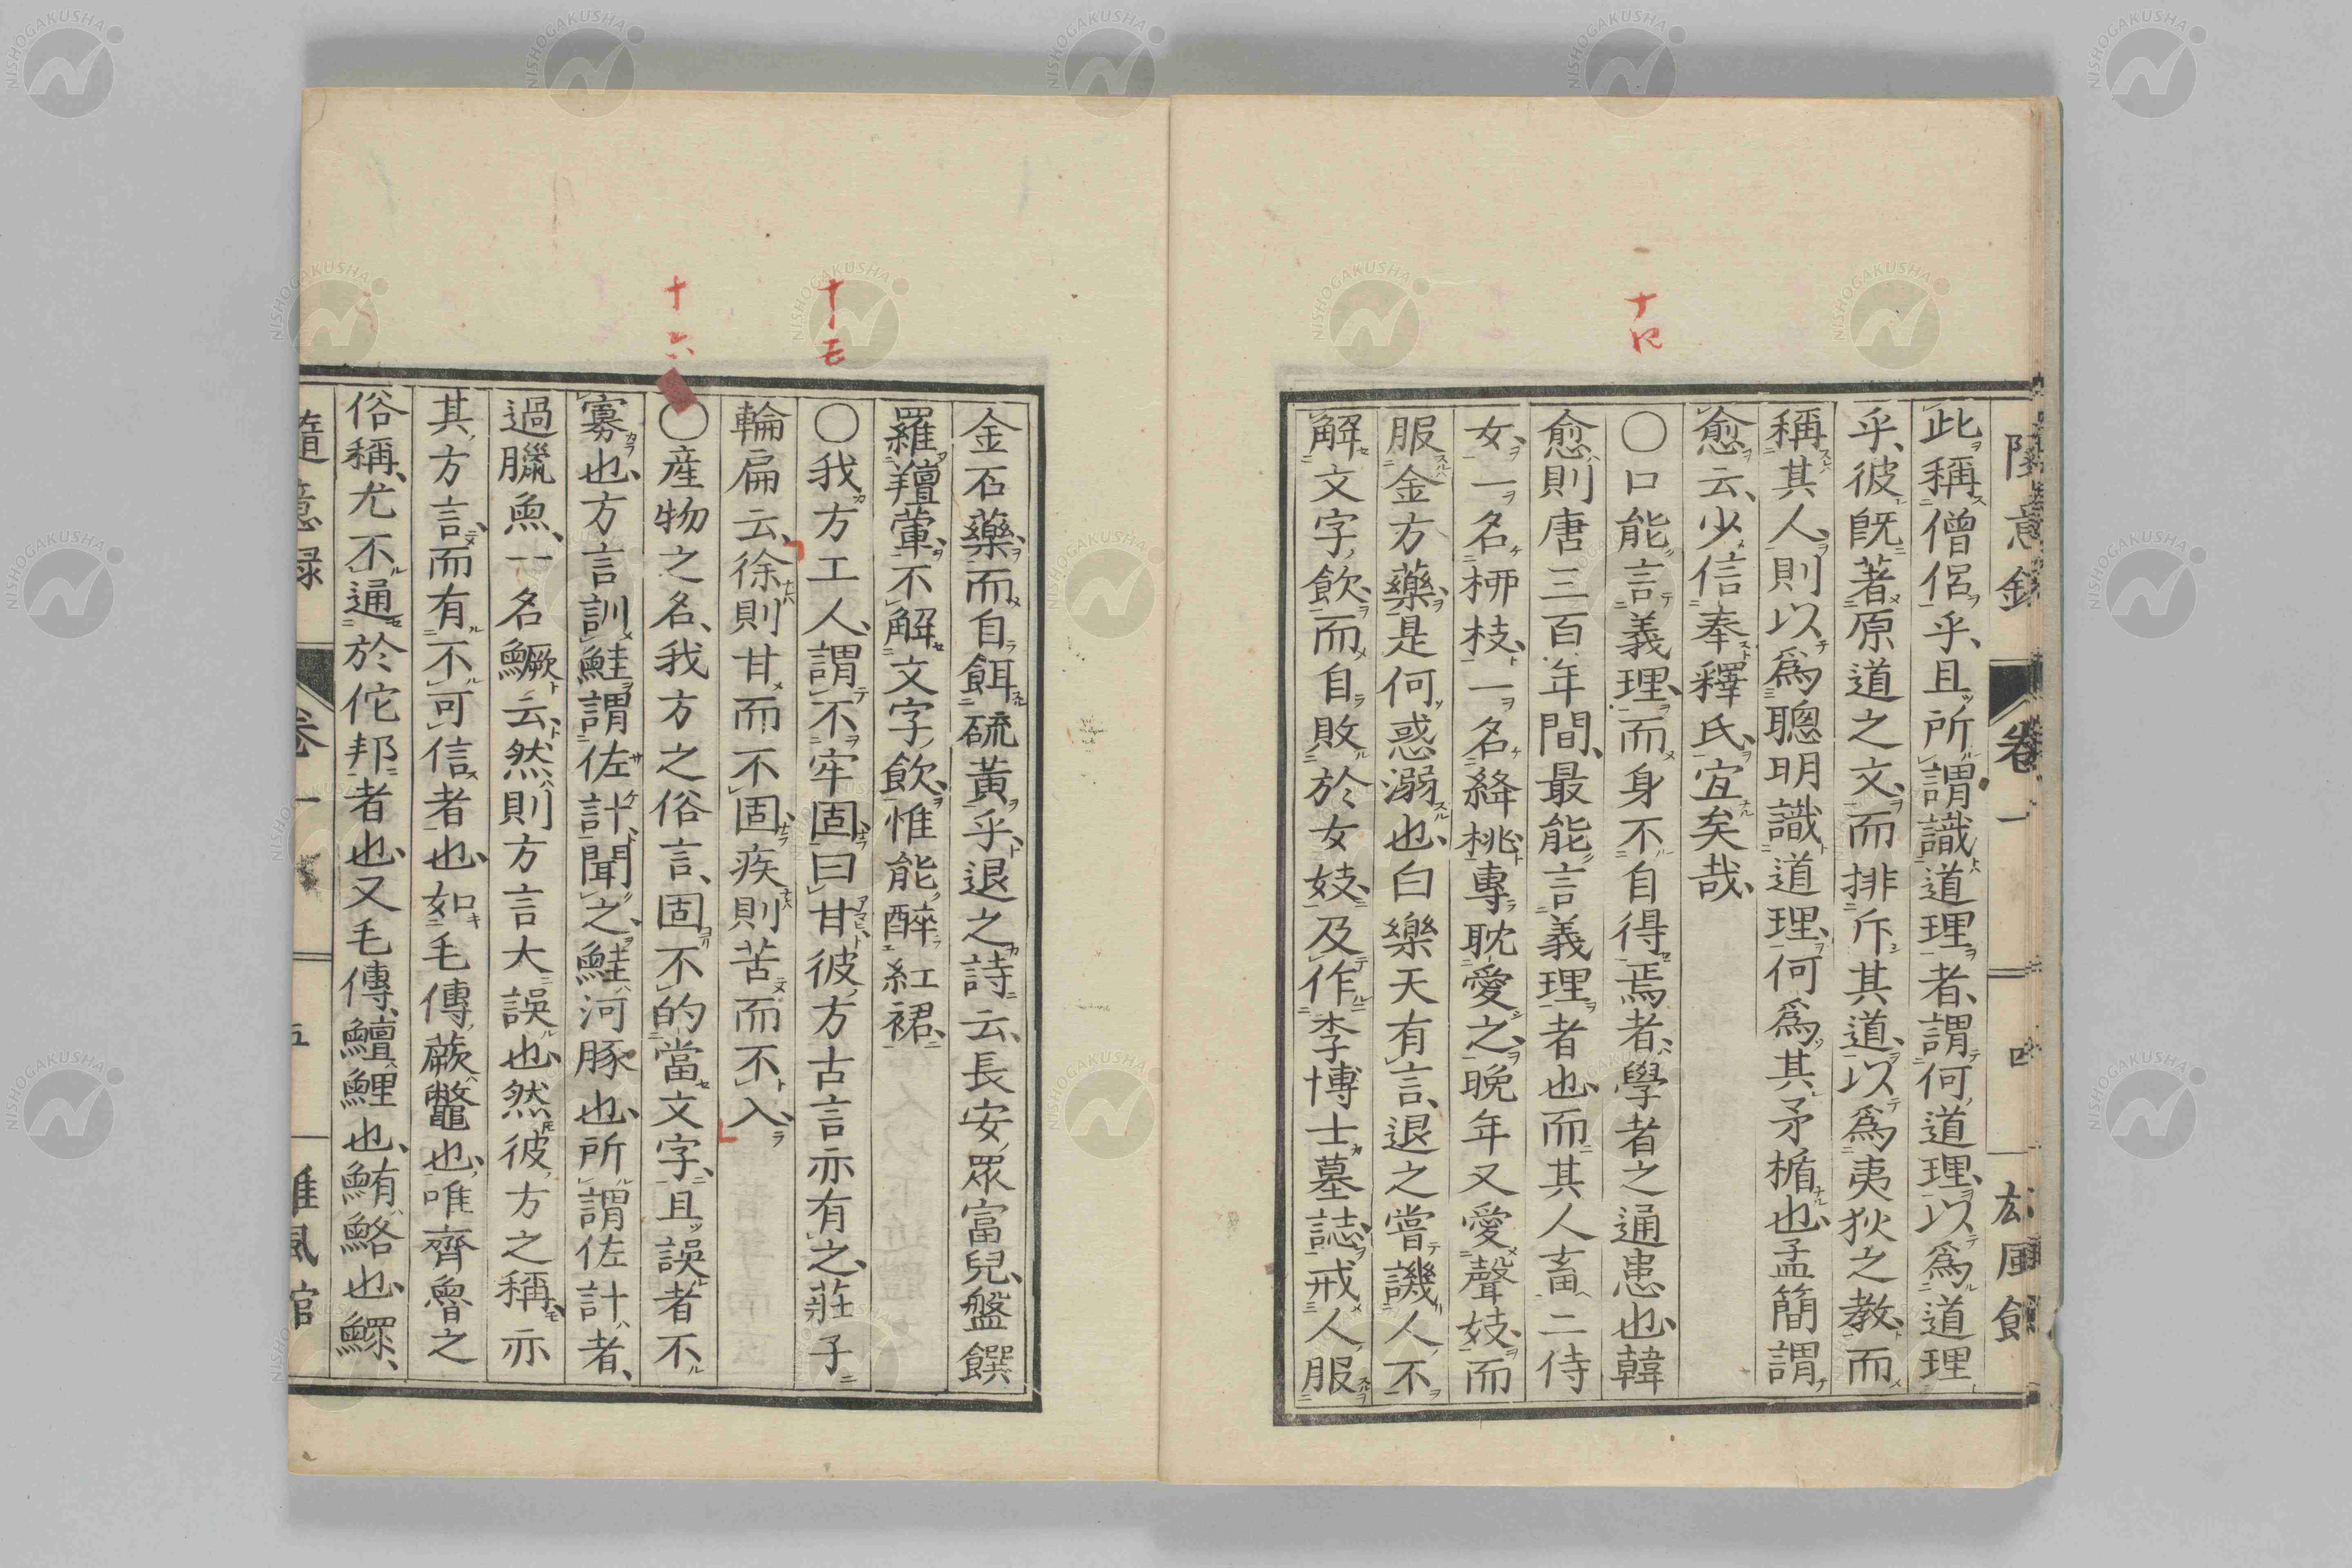 此稱僧侶乎、且所謂識道理者、謂何道理、以爲道理
乎、彼既著原道之文、而排斥其道、以爲夷狄之教、而
稱其人、則以爲聰明識道理、何爲其矛楯也、孟簡謂
愈云、少信奉釋氏、宜矣哉、
十四
〇口能言義理、而身不自得焉者、學者之通患也、韓
愈則唐三百年間、最能言義理者也、而其人畜二侍
女、一名柳枝、一名絳桃、專耽愛之、晩年又愛聲妓、而
服金方藥、是何惑溺也、白樂天有言、退之嘗譏人、不
解文字飲、而自敗於女妓、及作李博士墓誌、戒人服
金石藥、而自餌硫黃乎、退之詩云、長安眾富兒、盤饌
羅羶葷、不解文字飲、惟能醉紅裙、
十五
〇我方工人、謂不牢固曰甘、彼方古言亦有之、莊子
輪扁云、徐則甘而不固、疾則苦而不入、
十六
〇産物之名、我方之俗言、固不的當文字、且誤者不
寡也、方言訓鮭謂佐計、聞之、鮭河豚也、所謂佐計者、
過臘魚、一名鱖云、然則方言大誤也、然彼方之稱、亦
其方言、而有不可信者也、如毛傳、蕨鼈也、唯齊魯之
俗稱、尤不通於佗邦者也、又毛傳、鱣鯉也、鮪鮥也、鰥、
隨意錄 卷一 五
NISHOGAKUSHA